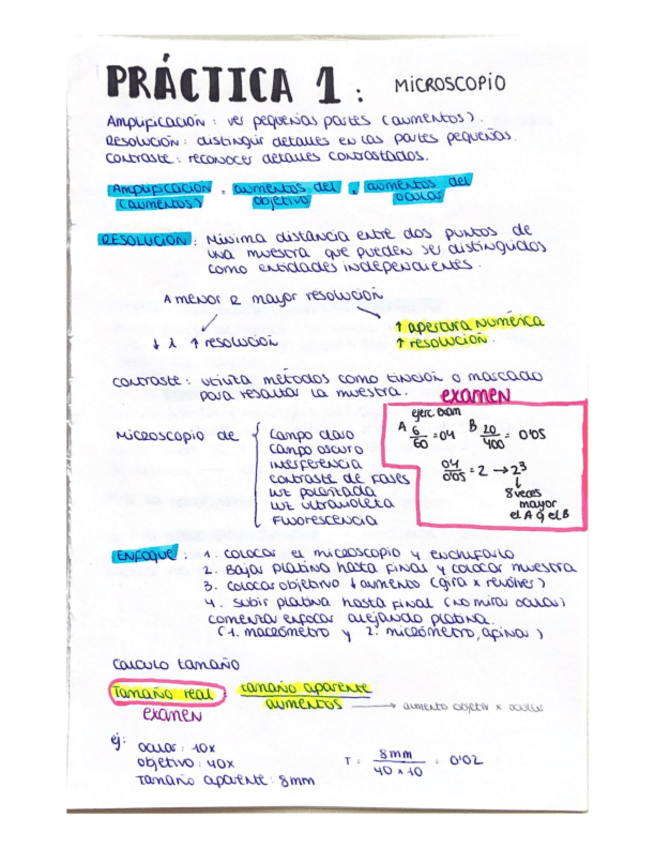 PRÁCTICA 1: MICROSCOPIO
Amplificación: ver pequeñas partes (aumentos).
Resolución: distinguir detalles en las partes pequeñas.
Contraste: reconocer detalles contrastados.
Amplificación (aumentos) = aumentos del objetivo · aumentos del ocular
RESOLUCIÓN: Mínima distancia entre dos puntos de
una muestra que pueden ser distinguidos
como entidades independientes.
A menor R mayor resolución
↓ λ ↑ resolución
↑ apertura numérica
↑ resolución.
Contraste: utiliza métodos como tinción o marcado
para resaltar la muestra.
examen
ejerc. exam
A 6/60 = 04 B 20/400 = 0'05
04/0'05 = 2 → 2³
↓
8 veces
mayor
el A q el B
Microscopio de
Campo claro
Campo oscuro
Interferencia
Contraste de fases
Luz polarizada
Luz ultravioleta
Fluorescencia
ENFOQUE: 1. Colocar el microscopio y enchufarlo
2. Bajar platina hasta final y colocar muestra
3. Colocar objetivo ↓ aumento (gira x revólver)
4. Subir platina hasta final (no mirar ocular)
comenzar enfocar alejando platina.
(1. macrómetro y 2. micrómetro, afinar)
Calculo tamaño
Tamaño real tamaño aparente / aumentos → aumento objetiv x ocular
examen
ej: ocular: 10x
objetivo: 40x
Tamaño aparente: 8mm
T = 8mm / 40 x 10 = 0'02